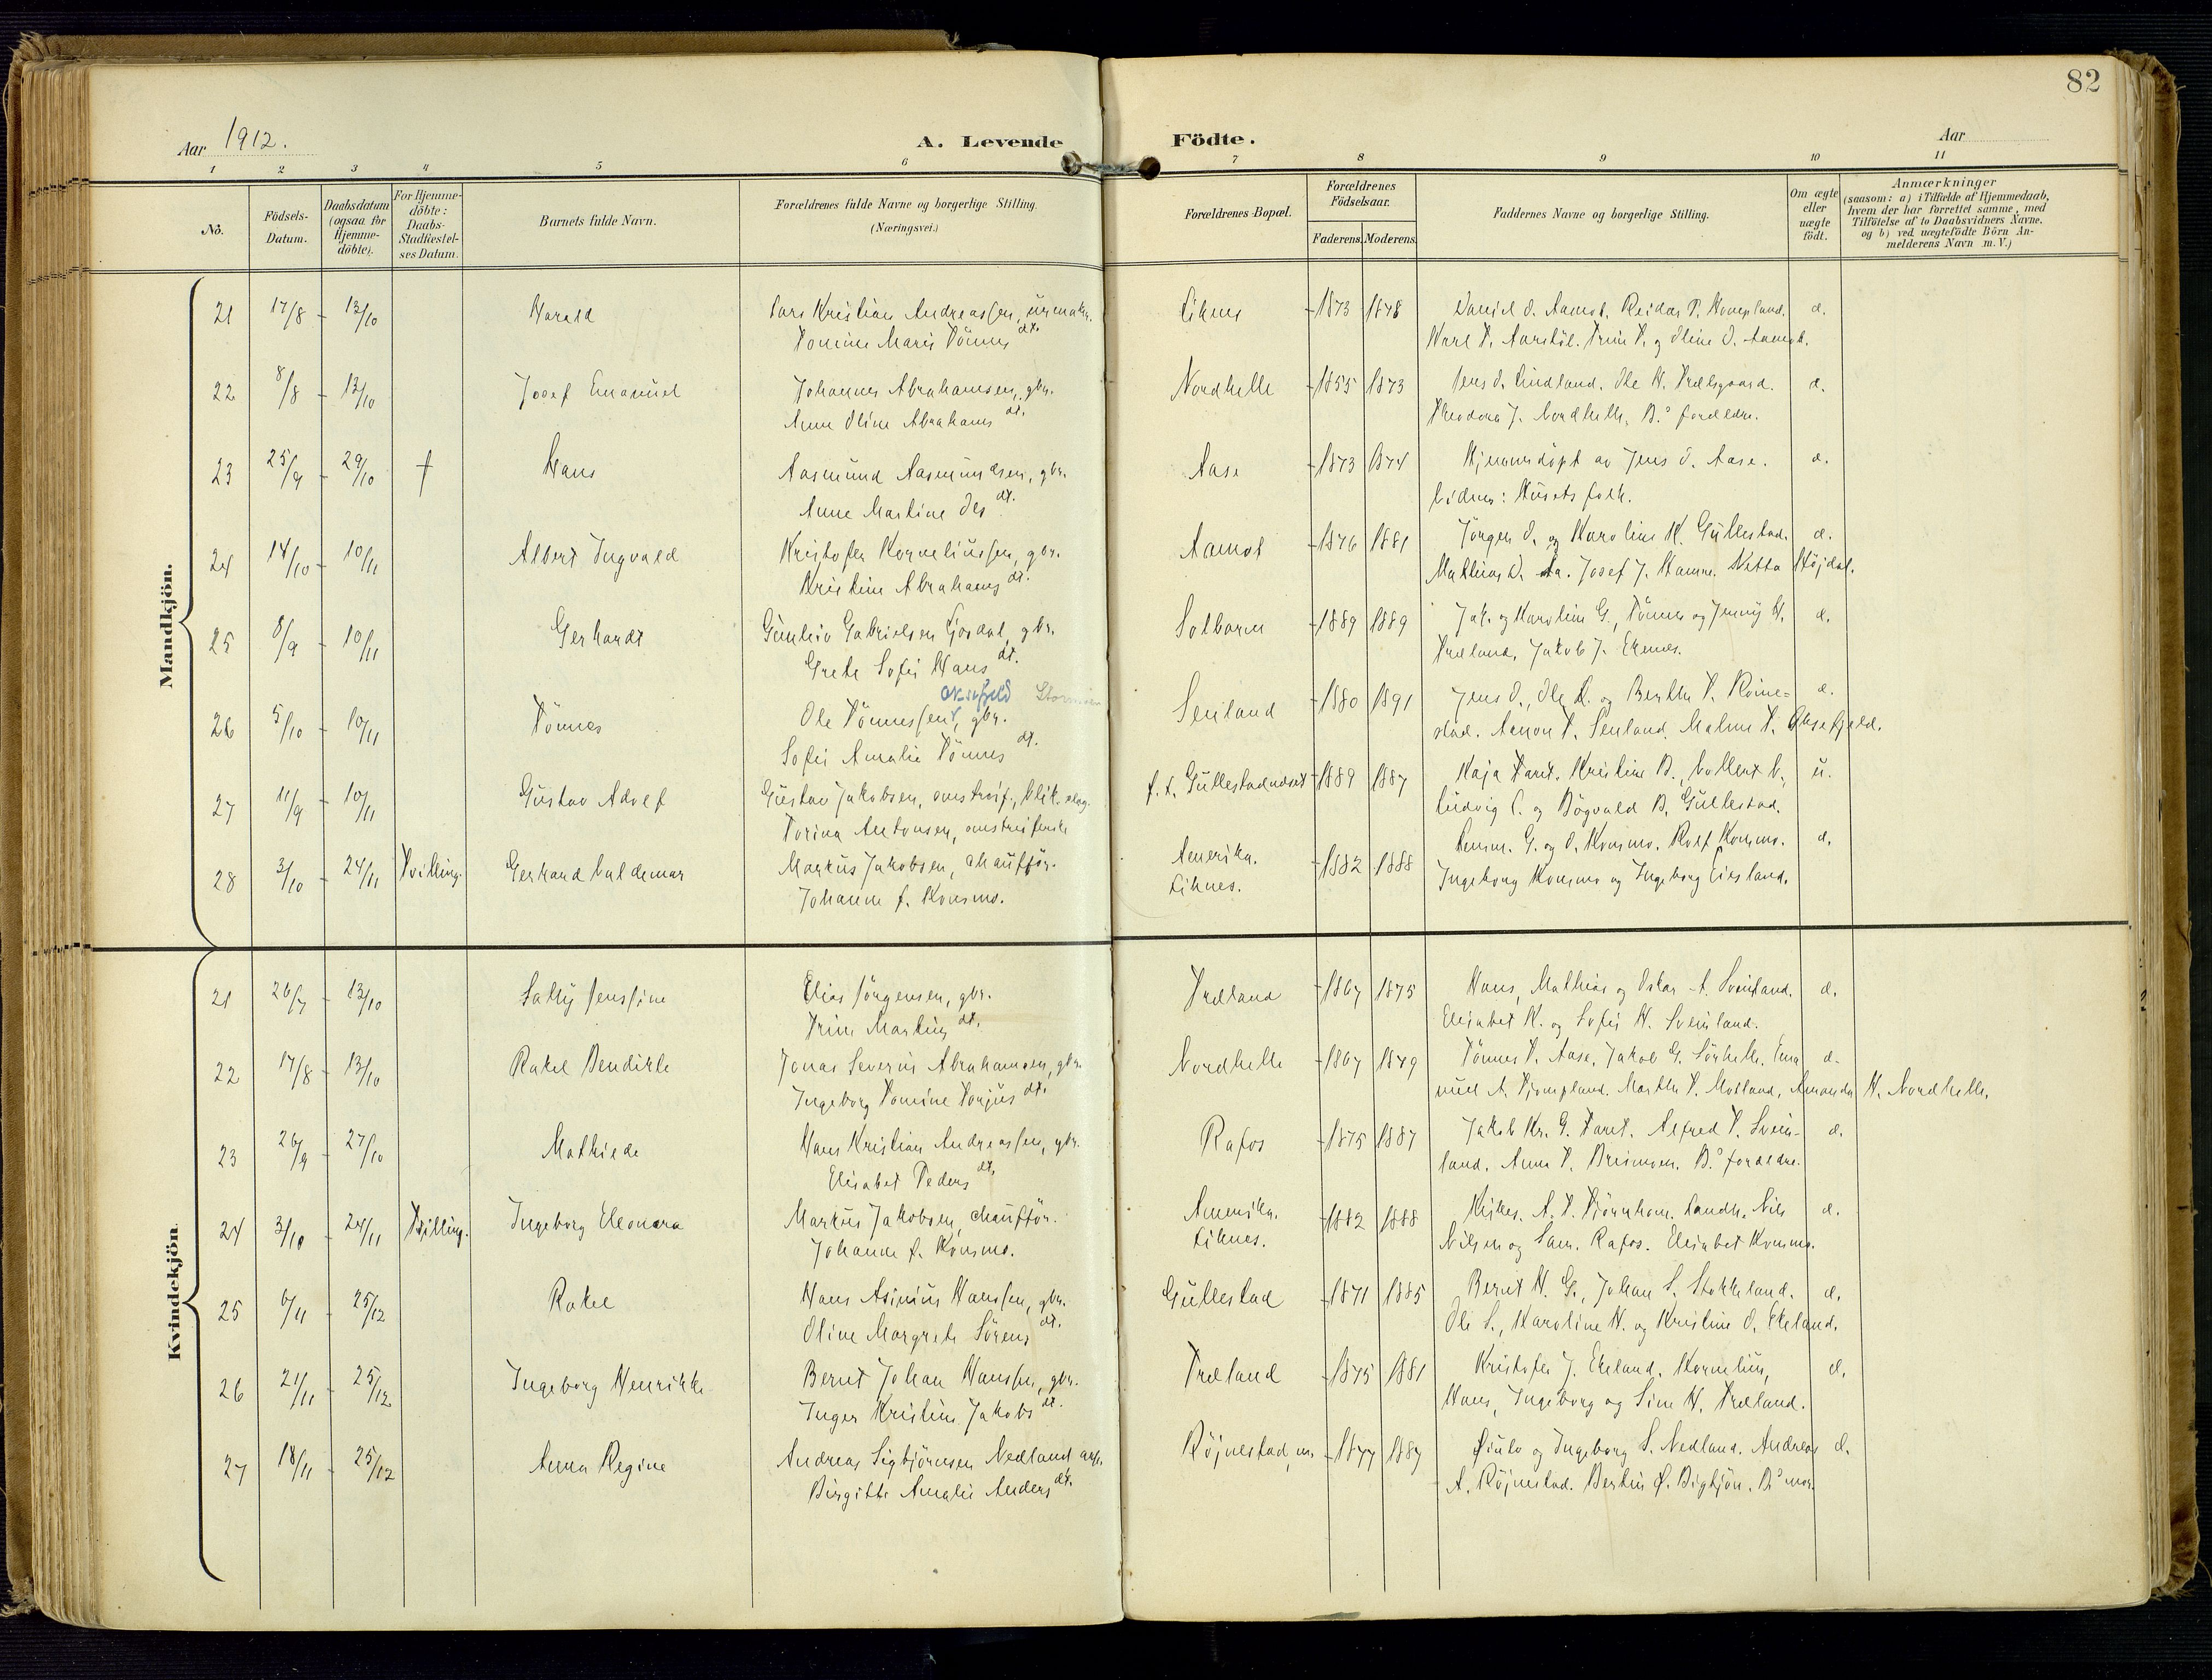 82
Aar 1912.
A. Levende Födte.
Aar
1 2 3 4 5 6 7 8 9 10 11
No. Födsels-Datum. Daabsdatum (ogsaa for Hjemme-döbte). For Hjemme-döbte: Daabs-Stadfæstel-ses Datum. Barnets fulde Navn. Forældrenes fulde Navne og borgerlige Stilling. (Næringsvei.) Forældrenes Bopæl. Forældrenes Födselsaar. Faderens. Moderens. Faddernes Navne og borgerlige Stilling. Om ægte eller uægte födt. Anmærkninger (saasom: a) i Tilfælde af Hjemmedaab, hvem der har forrettet samme, med Tilföielse af to Daabsvidners Navne. og b) ved uægtefödte Börn Anmelderens Navn m. V.)
Mandkjön.
21 17/8 - 13/10 Harald Lars Kristian Andreassen, urmaker. Liknes 1873 1878 Daniel O. Aamot. Reidar P. æ.
Tomine Marie Tönnes dt. Trine T. og Oline O. Aamot.
22 8/8 - 13/10 Josef Emanuel Johannes Abrahamsen, gbr. Nordhelle 1855 1873 Jens O. Lindland. Ole H. æ.
Anne Oline Abrahams dt. Theodora J. Nordhelle. B.s foreldre.
23 25/9 - 29/10 † Hans Aasmund Aasmundsen, gbr. Aase 1873 1874 Hjemmedöpt av Jens O. Aase. æ.
Anne Martine Ols dt. Vidner: Husets folk.
24 14/10 - 10/11 Albert Ingvald Kristofer Korneliussen, gbr. Aamot 1876 1881 Jörgen O. og Karoline K. Gullestad. æ.
Kristine Abrahams dt. Mathias O. Aa. Josef J. Hamre. Netta Höjdal.
25 8/9 - 10/11 Gerhardt Gunleiv Gabrielsen Fjosdal, gbr. Solbaren 1889 1889 Jak. og Karoline G., Tönnes og Jenny H. æ.
Grete Sofie Hans dt. Træland, Jakob J. Ekenes.
26 5/10 - 10/11 Tönnes Ole Tönnessen, gbr. Senland 1880 1891 Jens O., Ole L. og Berthe T. Röine- æ.
Sofie Amalie Tönnes dt. stad. Aanon T. Senland. Malene T. Oksefjeld.
27 11/9 - 10/11 Gustav Adolf Gustav Jakobsen, omstreif., blik.slag. f. t. Gullestadmoset 1889 1887 Kaja Faret. Kristine B., Vollert V., u.
Torina Antonsen, omstreiferske Ludvig C. og Bögvald B. Gullestad.
28 3/10 - 24/11 Tvilling. Gerhard Valdemar Markus Jakobsen, chauffør. Amerika. 1882 1888 Lensm. G. og O. Konsmo. Rolf Konsmo. æ.
Johanne f. Konsmo. Liknes. Ingeborg Konsmo og Ingeborg Eiesland.
Kvindekjön.
21 26/7 - 13/10 Sally Jenssine Elias Jörgensen, gbr. Træland 1867 1875 Hans, Mathias og Oskar A. Sveinland. æ.
Trine Martins dt. Elisabet K. og Sofie H. Sveinland.
22 17/8 - 13/10 Rakel Bendikte Jonas Severin Abrahamsen, gbr. Nordhelle 1867 1879 Tönnes T. Aase. Jakob G. Sörhelle. Ema- æ.
Ingeborg Tomine Torjus dt. nuel A. Marthe T. Motland. Amanda H. Nordhelle.
23 26/9 - 27/10 Mathilde Hans Kristian Andreassen, gbr. Rafos 1875 1887 Jakob Kr. G. Faret. Alfred T. Svein- æ.
Elisabet Peders dt. land. Anne T. B.s foreldre.
24 3/10 - 24/11 Tvilling. Ingeborg Eleonora Markus Jakobsen, chauffør. Amerika. 1882 1888 Kirkes. A. T. Landh. Nils æ.
Johanne f. Konsmo. Liknes. Nilsen og Sam. Rafos. Elisabet Konsmo.
25 6/11 - 25/12 Rakel Hans Asinius Hanssen, gbr. Gullestad 1871 1885 Bernt H. G., Johan S. Stokkeland. æ.
Oline Margrete Sörens dt. Ole S., Karoline H. og Kristine O. Ekeland.
26 21/11 - 25/12 Ingeborg Henrikke Bernt Johan Hanssen, gbr. Træland 1875 1881 Kristofer J. Ekeland. Kornelius, æ.
Inger Kristine Jakobs dt. Hans, Ingeborg og Sine H. Træland.
27 18/11 - 25/12 Anna Regine Andreas Sigbjörnsen Nedland, arb. Röjnestad, m. 1877 1887 Öiulv og Ingeborg S. Nedland. Andreas æ.
Birgitte Amalie Anders dt. A. Röjnestad. B.s mor.